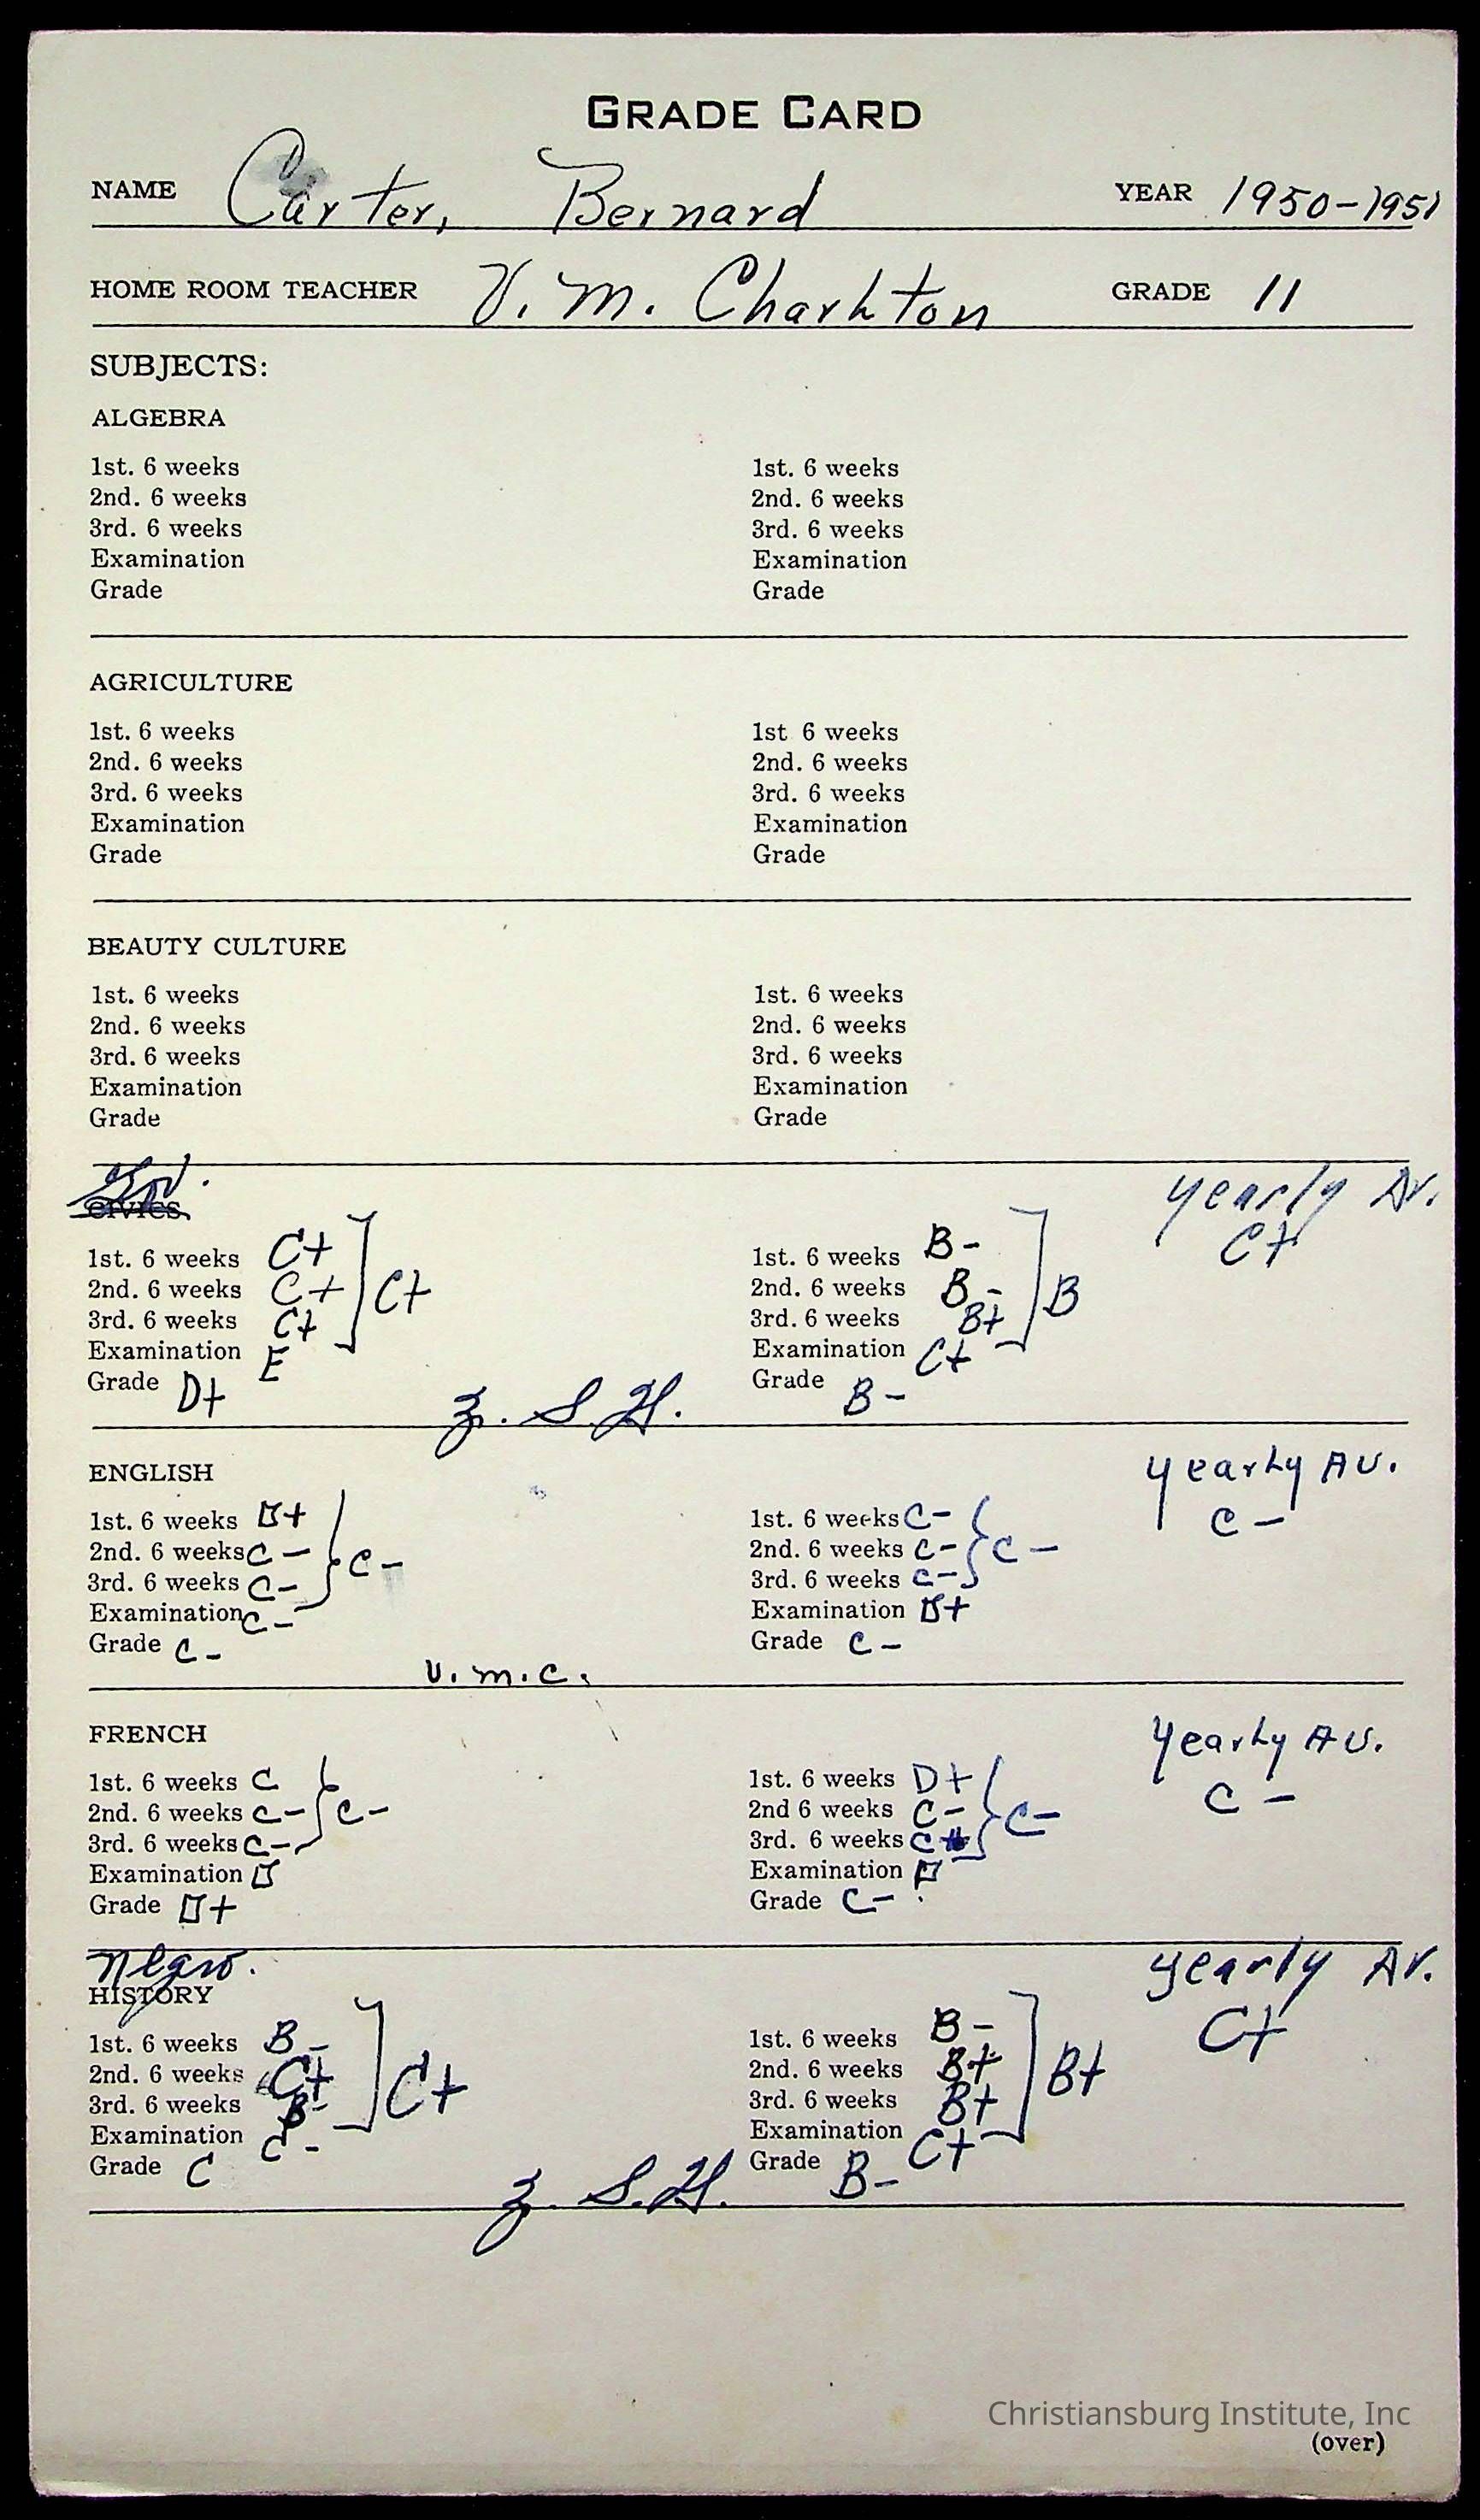 GRADE CARD
NAME Carter, Bernard YEAR 1950-1951
HOME ROOM TEACHER V. M. Charlton GRADE 11
SUBJECTS:
ALGEBRA
1st. 6 weeks 1st. 6 weeks
2nd. 6 weeks 2nd. 6 weeks
3rd. 6 weeks 3rd. 6 weeks
Examination Examination
Grade Grade
AGRICULTURE
1st. 6 weeks 1st 6 weeks
2nd. 6 weeks 2nd. 6 weeks
3rd. 6 weeks 3rd. 6 weeks
Examination Examination
Grade Grade
BEAUTY CULTURE
1st. 6 weeks 1st. 6 weeks
2nd. 6 weeks 2nd. 6 weeks
3rd. 6 weeks 3rd. 6 weeks
Examination Examination
Grade Grade
CIVICS. yearly Av.
1st. 6 weeks C+ 1st. 6 weeks B- C+
2nd. 6 weeks C+ C+ 2nd. 6 weeks B- B
3rd. 6 weeks C+ 3rd. 6 weeks B+
Examination E Examination C+
Grade D+ Z. S. H. Grade B-
ENGLISH yearly Av.
1st. 6 weeks D+ 1st. 6 weeks C- C-
2nd. 6 weeks C- C- 2nd. 6 weeks C- C-
3rd. 6 weeks C- 3rd. 6 weeks C-
Examination C- Examination D+
Grade C- Grade C-
V.M.C.
FRENCH yearly Av.
1st. 6 weeks C 1st. 6 weeks D+ C-
2nd. 6 weeks C- C- 2nd 6 weeks C- C-
3rd. 6 weeks C- 3rd. 6 weeks C
Examination D Examination D
Grade D+ Grade C-
Negro. yearly Av.
HISTORY
1st. 6 weeks B- 1st. 6 weeks B- C+
2nd. 6 weeks C+ C+ 2nd. 6 weeks B+ B+
3rd. 6 weeks B- 3rd. 6 weeks B+
Examination C- Examination C+
Grade C Z. S. H. Grade B-
Christiansburg Institute, Inc
(over)